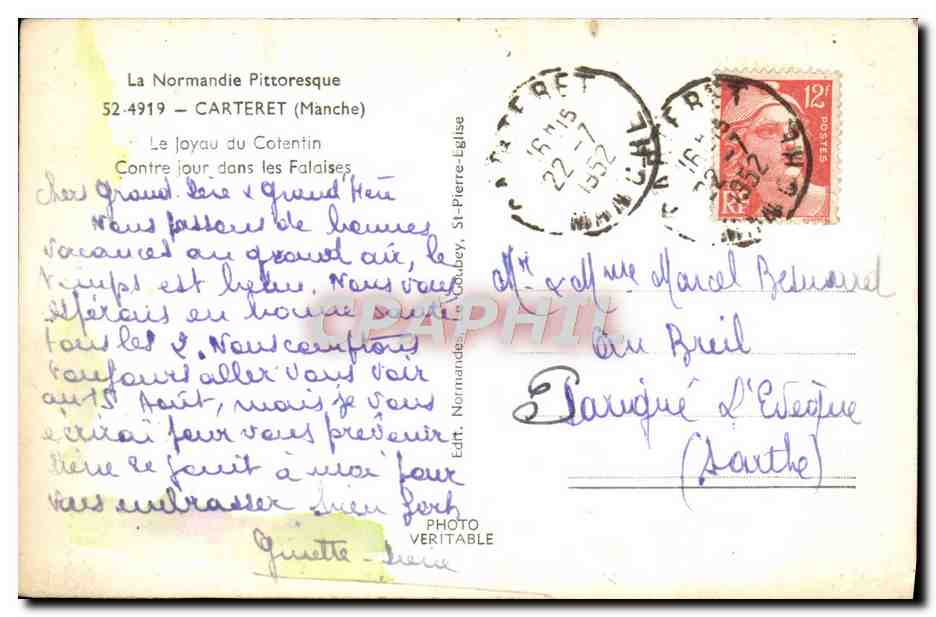 La Normandie Pittoresque
52-4919 - CARTERET (Manche)
Le Joyau du Cotentin
Contre jour dans les Falaises
Cher Grand
Nous passons de bonnes
vacances au grand air, le
temps est Nous vous
en bonne santé
tous les 2. Nous comptons
toujours aller vous voir
au 15 Août, mais je vous
écrirai pour vous prévenir
à moi pour
vous embrasser bien fort
Ginette
Edit. Normandes, Goubey, St-Pierre-Eglise
PHOTO
VERITABLE
CARTERET
16H15
22-7
1952
MANCHE
CARTERET
16H15
22-7
1952
MANCHE
12F
POSTES
RF
Mr & Mme Marcel
Au Breil
Parigné L'Evêque
(Sarthe)
CPAPHIL